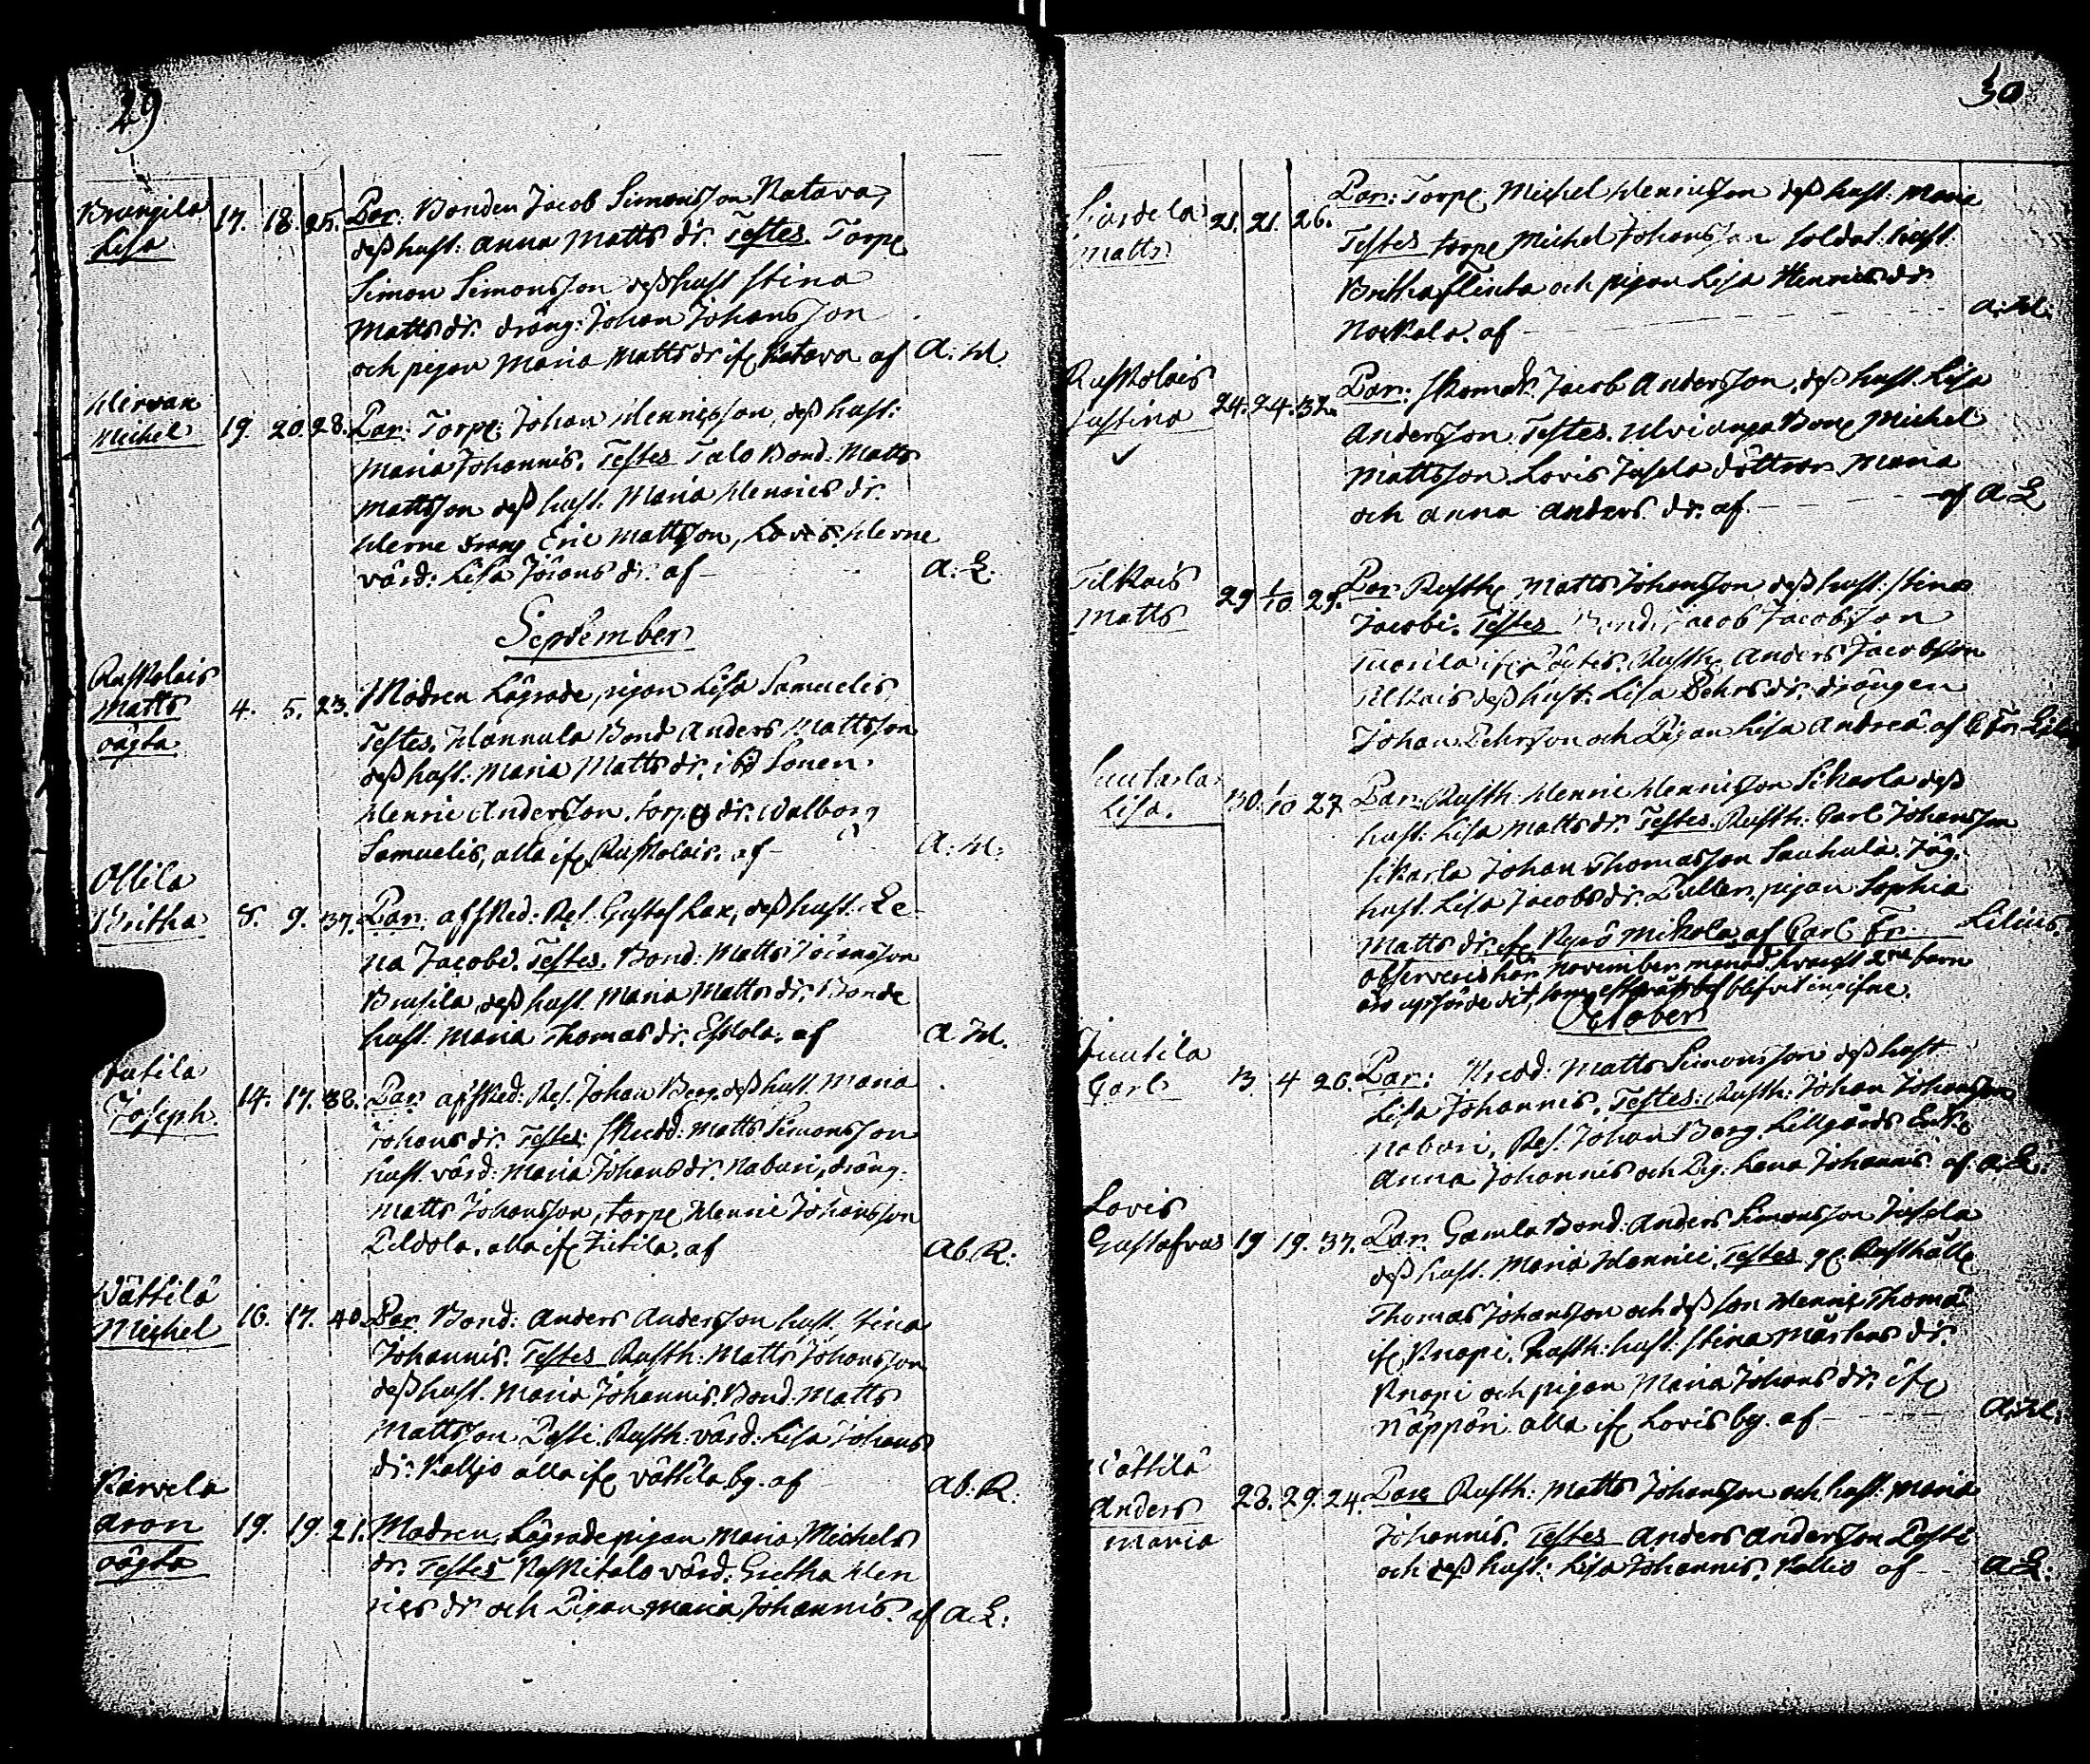 29
Brusila
Lisa
17. 18. 25. Par: Bonden Jacob Simonsson Ratava,
dess hust: Anna Matts dr. Testes. Torp
Simon Simonsson dess hust Stina
Matts dr. dräng: Johan Johansson
och pigan Maria Matts dr if Ratava af A: H.
Hervan
Michel
19. 20. 28. Par: Torp: Johan Henricsson, dess hust:
Maria Johannis. Testes Talo Bond: Matts
Mattsson dess hust. Maria Henrics dr.
Herne dräng Eric Mattsson, Lovis Herne
värd: Lisa Jörans dr. af A: L:
September
Ruskolais
Matts
oägta
4. 5. 23. Modren Lägrade pigan Lisa Samuelis
Testes. Hannula Bond Anders Mattsson
dess hust: Maria Matts dr. ibd Sonen
Henric Andersson. torp dr. Walborg
Samuelis, alla if Ruskolais. af A: H:
Ollila
Britha
8. 9. 37. Par: afsked: Ref. Gustaf Lax, dess hust. Le-
na Jacobi. Testes. Bond: Matts Jöransson
Brusila, dess hust. Maria Matts dr. Bonde
hust: Maria Thomas dr. Eskola. af A H.
Joseph.
14. 17. 38. Par: afsked: Ref. Johan Berg. dess hust. Maria
Johans dr. Testes: Skredd: Matts Simonsson
hust. värd: Maria Johans dr. Naburi, dräng.
Matts Johansson, torp Henric Johansson
Peldola. alla if Jutila. af Ab. R:
Wättilä
Michel
16. 17. 40. Par. Bond: Anders Andersson hust. Stina
Johannis. Testes Rusth: Matts Johansson
dess hust. Maria Johannis. Bond: Matts
Mattsson Pesti. Rusth: värd: Lisa Johans
dr: Kallio alla if Wättilä by. af Ab: R:
Karvela
Aron
oägta
19. 19. 21. Modren, Lägrade pigan Maria Michels
dr. Testes Keskitalo värd: Gretha Hen
rics dr och Pigan Maria Johannis. af A: L:
30
Matts
21. 21. 26. Par: Torp Michel Henricsson dess hust: Maria
Testes torp Michel Johansson soldat: hust:
Britha Flinta och pigan Lisa Henrics dr
Nokala. af A: H:
Ruskolais
Justina
24. 24. 32. Par: Skomak: Jacob Andersson, dess hust. Lisa
Andersson. Testes. Bond Michel
Mattsson. Lovis Jusela döttrar Maria
och Anna Anders dr. af af A L
Tilkais
Matts
29 1/10 29. Par Rusth Matts Johansson dess hust: Stina
Jacobi. Testes Bond: Jacob Jacobsson
Tuorila if Rusth Anders Jacobsson
Tilkais dess hust: Lisa Pehrs dr. drängen
Johan Pehrsson och Pigan Lisa Andreæ. af C Fr. Lili
Lisa.
30. 1/10 27 Par: Rusth: Henric Henricsson Sikarla dess
hust: Lisa Matts dr. Testes. Rusth: Carl Johansson
Sikarla Johan Thomasson Sauhula. Jäg.
hust. Lisa Jacobs dr. Puller. pigan Sophia
Matts dr. if Kyrö Mikola, af Carl Fr. Lilius.
observeras här November månad, hvarest 2ne barn
äro upförde dit, som blifvit ingifne.
October
Juutila
Carl
3. 4 26. Par: Skredd: Matts Simonsson dess hust
Lisa Johannis. Testes: Rusth: Johan Johansson
Naburi, Ref. Johan Berg. Lillgårds Enk.
Anna Johannis och Pig: Lena Johannis. af: A: L:
Lovis
Gustafvus
19 19. 37. Par. Gamla Bond: Anders Simonsson Jusela
dess hust. Maria Henrici. Testes Rusthåll
Thomas Johansson och dess son Henric Thomæ
if Knapi. Rusth: hust: Stina Mårtens dr.
Knapi och pigan Maria Johans dr. if
Näppöri. alla if Lovis by. af A: H:
Wättilä
Anders
Maria
28. 29. 24. Par: Rusth: Matts Johansson och hust: Maria
Johannis. Testes Anders Andersson Pesti
och dess hust.: Lisa Johannis. Kallio af A L: